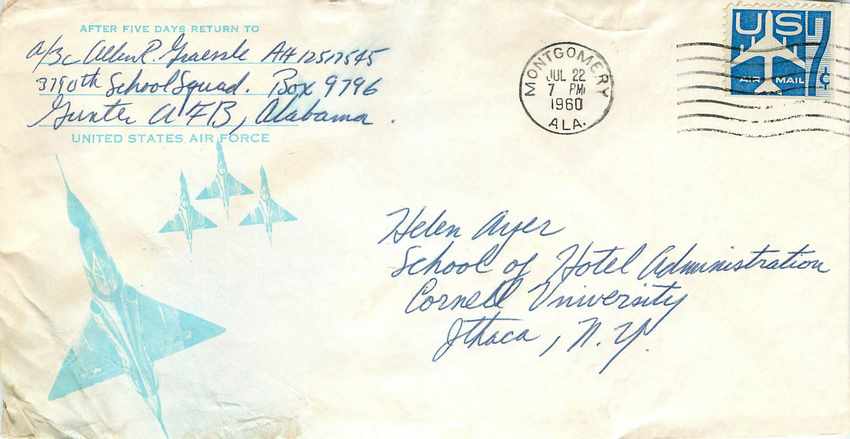 AFTER FIVE DAYS RETURN TO
A/3c Allen R. AH12517545
3790th School Squad. Box 9796
Gunter AFB, Alabama.
UNITED STATES AIR FORCE
MONTGOMERY
JUL 22
7 PM
1960
ALA.
US 7¢
AIR MAIL
Helen Ayer
School of Hotel Administration
Cornell University
Ithaca, N.Y.